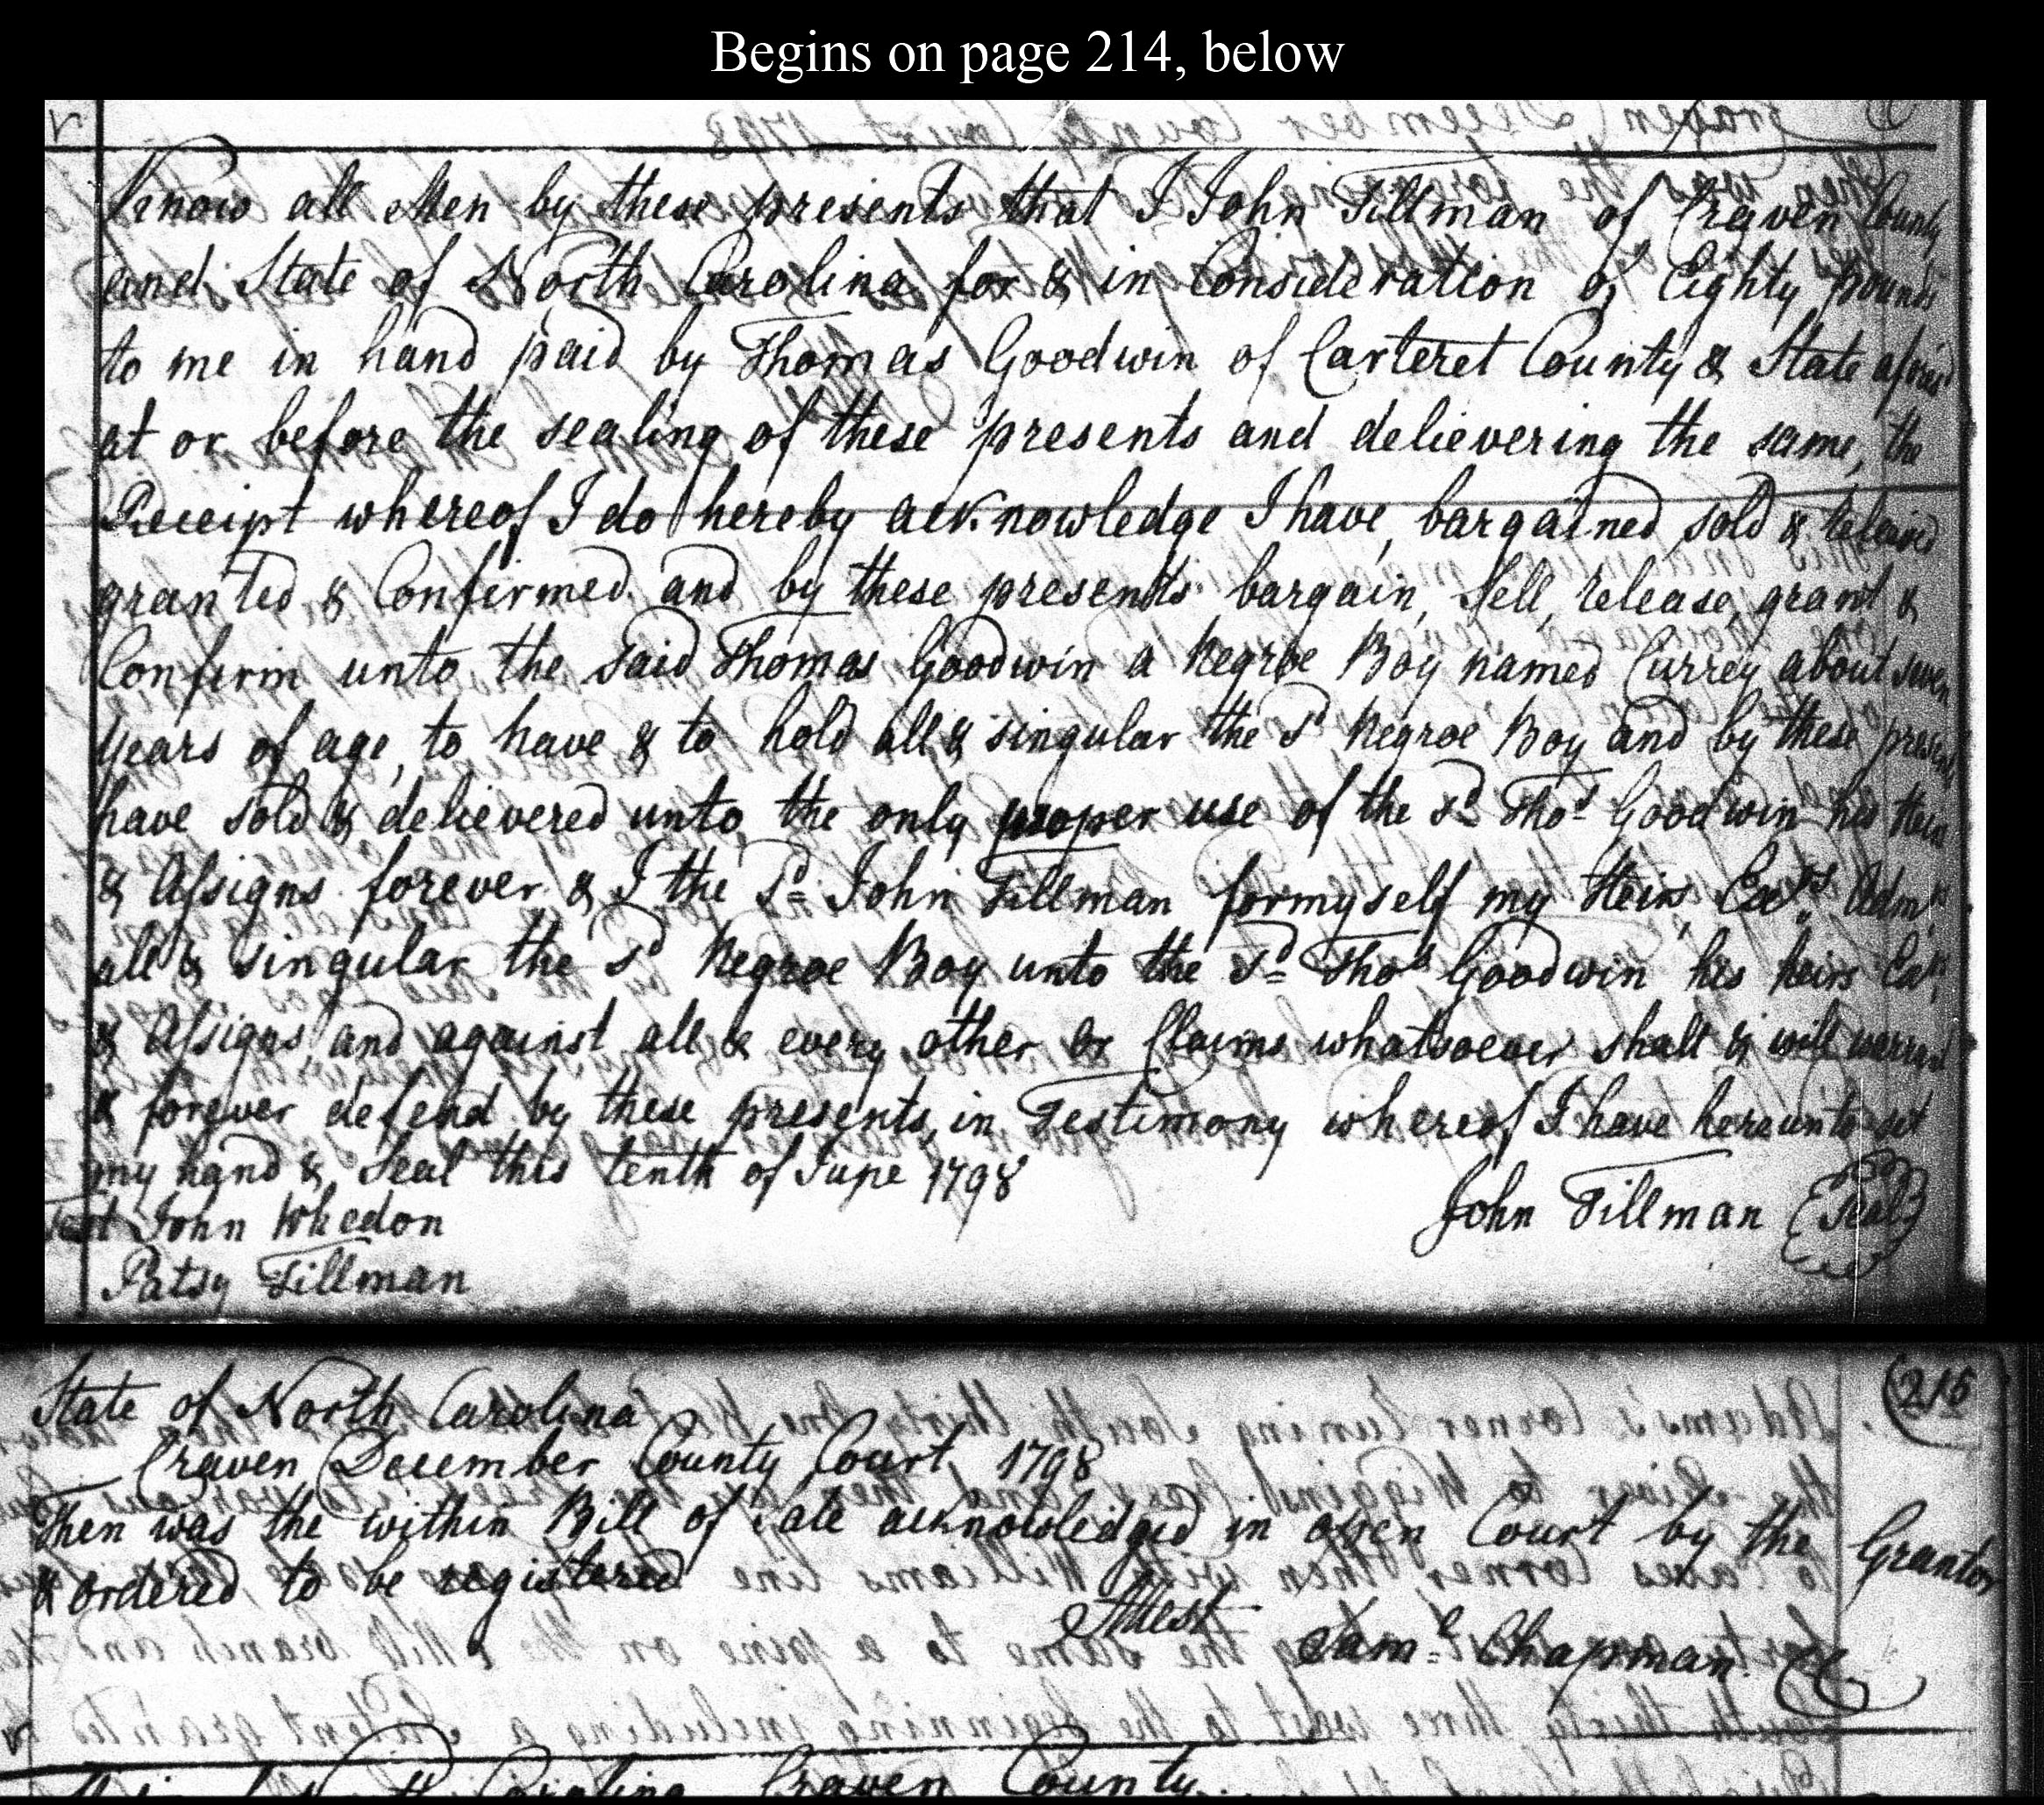 Begins on page 214, below
Know all Men by these presents that I John Tillman of Craven County
and State of North Carolina for & in Consideration of Eighty pounds
to me in hand paid by Thomas Goodwin of Carteret County & State afores
at or before the sealing of these presents and delievering the same, the
Receipt whereof I do hereby acknowledge I have, bargained sold & released
granted & Confirmed and by these presents bargain, Sell, release, grant &
Confirm unto the said Thomas Goodwin a Negroe Boy named Currey about seven
years of age, to have & to hold all & singular the sd Negroe Boy and by these presents
have sold & delievered unto the only proper use of the sd Thos Goodwin his Heirs
& Assigns forever & I the sd John Tillman for myself my Heirs, Exrs Admrs
all & singular the sd Negroe Boy unto the sd Thos Goodwin his heirs Exrs
& Assigns, and against all & every other or Claims whatsoever shall & will warrant
& forever defend by these presents, in Testimony whereof I have hereunto set
my hand & Seal this tenth of June 1798
Test John Whedon
John Tillman (Seal)
Patsy Tillman
215
State of North Carolina
Craven December County Court 1798
Then was the within Bill of Sale acknowledged in open Court by the Grantor
& ordered to be registered
Attest
Saml Chapman CC
North Carolina Craven County